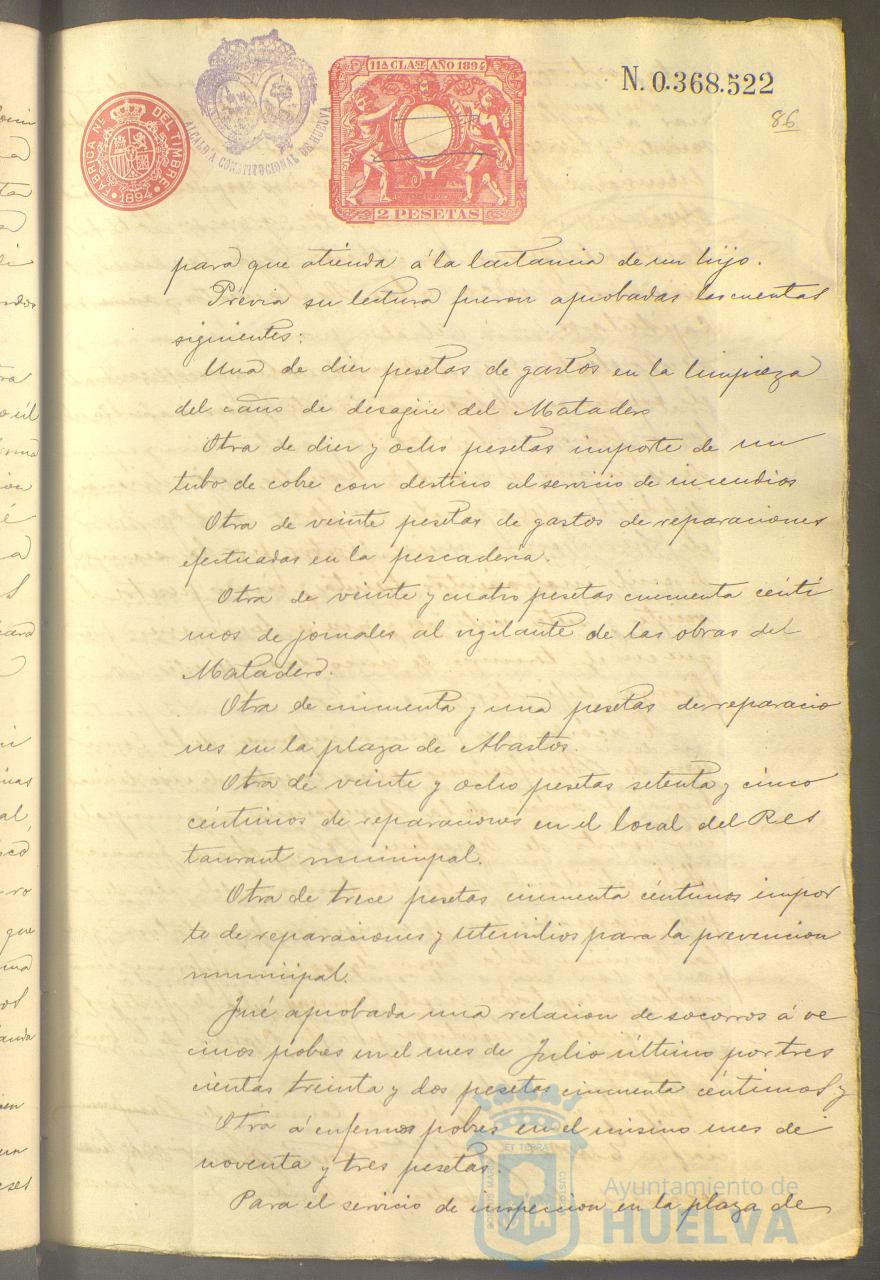 11ª CLASE AÑO 1894
N. 0.368.522
86
FABRICA Nᴸ DEL TIMBRE
1894
ALCALDIA CONSTITUCIONAL DE HUELVA
2 PESETAS
para que atienda á la lactancia de un hijo.
Prévia su lectura fueron aprobadas las cuentas
siguientes:
Una de diez pesetas de gastos en la limpieza
del caño de desagüe del Matadero
Otra de diez y ocho pesetas importe de un
tubo de cobre con destino al servicio de incendios
Otra de veinte pesetas de gastos de reparaciones
efectuadas en la pescadería.
Otra de veinte y cuatro pesetas cincuenta cénti
mos de jornales al vigilante de las obras del
Matadero.
Otra de cincuenta y una pesetas de reparacio
nes en la plaza de Abastos.
Otra de veinte y ocho pesetas setenta y cinco
céntimos de reparaciones en el local del Res
taurant municipal.
Otra de trece pesetas cincuenta céntimos impor
te de reparaciones y utensilios para la prevencion
municipal.
Fué aprobada una relacion de socorros á ve
cinos pobres en el mes de Julio último por tres
cientas treinta y dos pesetas cincuenta céntimos y
Otra á enfermos pobres en el mismo mes de
noventa y tres pesetas.
Para el servicio de inspeccion en la plaza de
ET TERRA
PORTUS MARIS
CUSTODIA
Ayuntamiento de
HUELVA